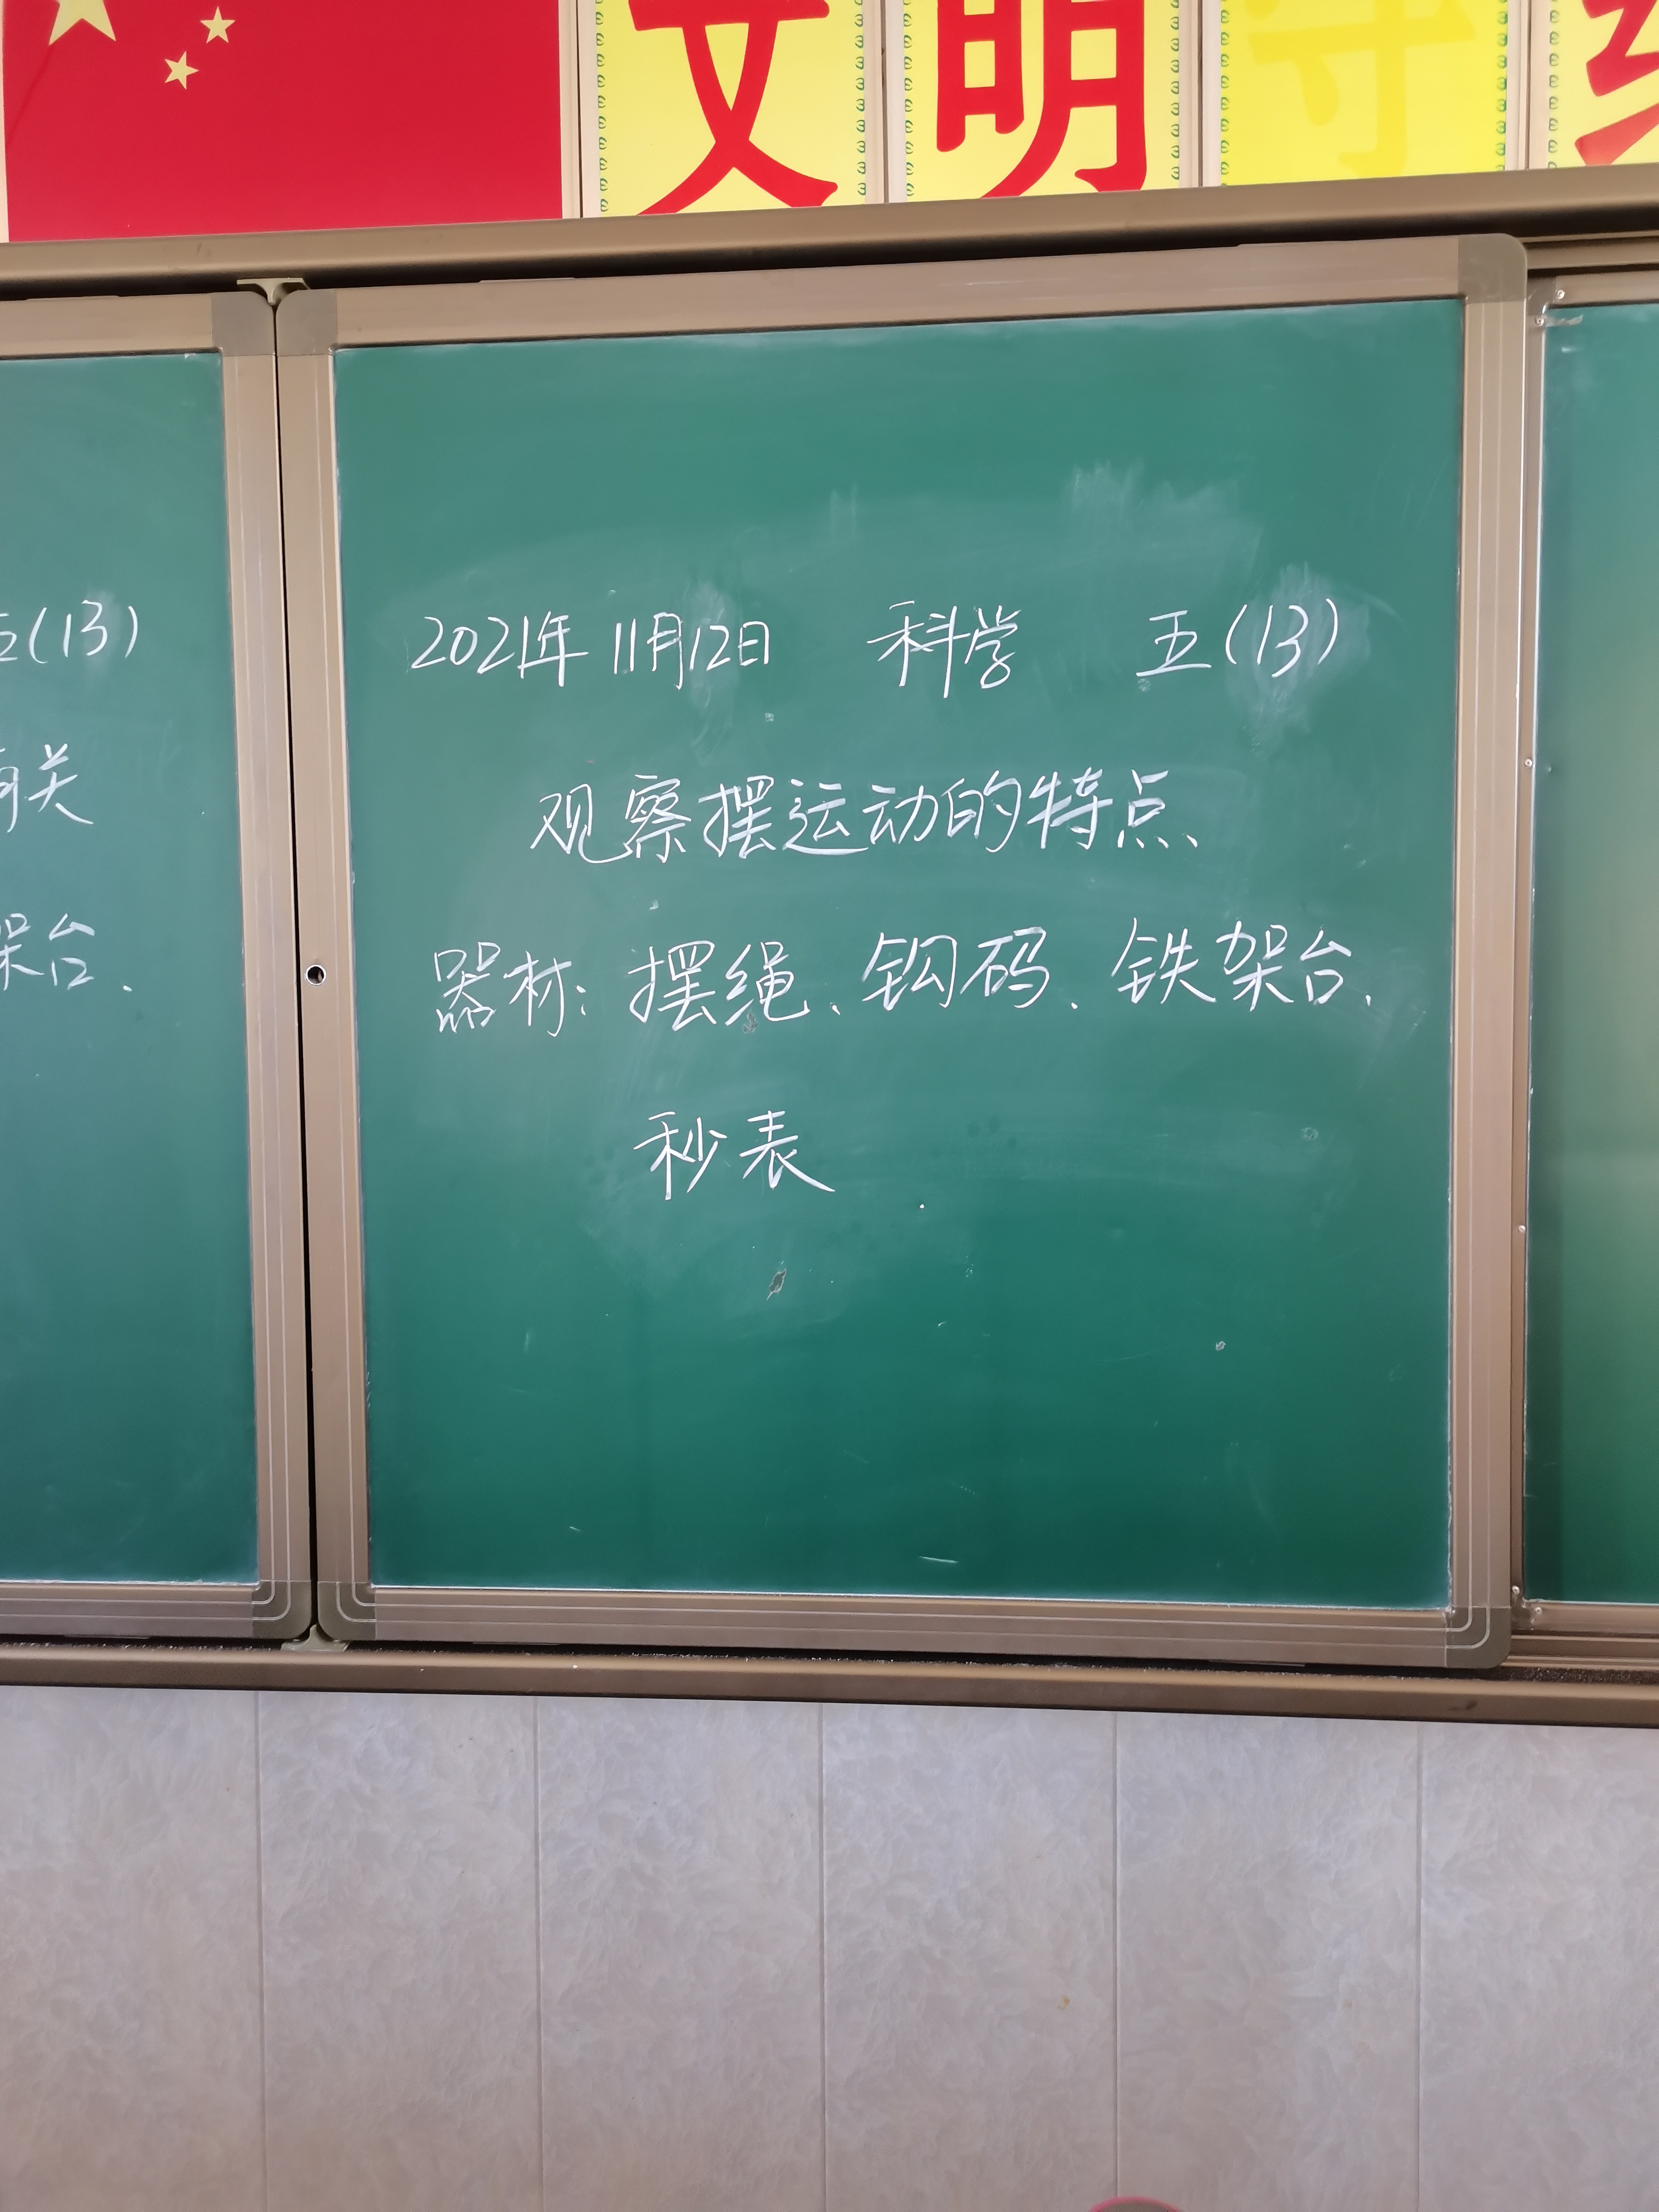 文明守纪
五(13)
有关
架台.
2021年11月12日 科学 五(13)
观察摆运动的特点、
器材: 摆绳、钩码、铁架台、
秒表